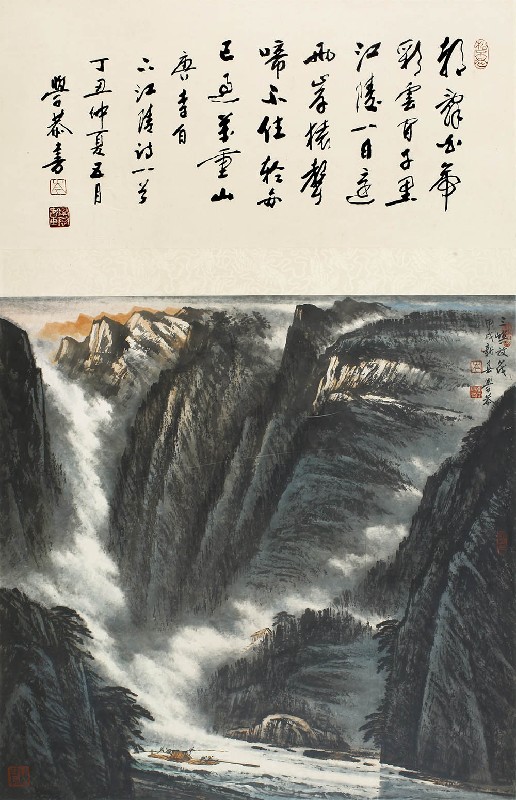 朝辭白帝
彩雲間千里
江陵一日還
兩岸猿聲
啼不住輕舟
已過萬重山
唐李白
下江陵詩一首
丁丑仲夏五月
學恭書
三峽放筏
甲戌新春學恭